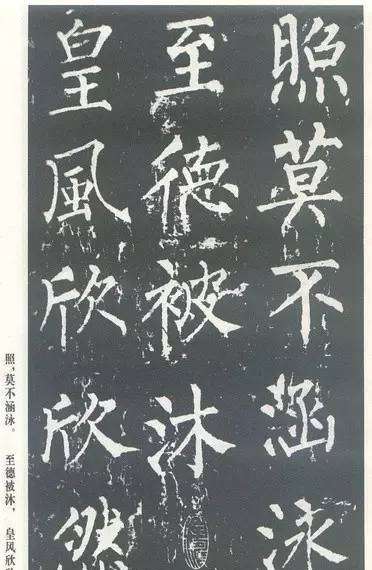 照莫不涵泳
至德被沐
皇風欣欣然
照，莫不涵泳。 至德被沐，皇风欣